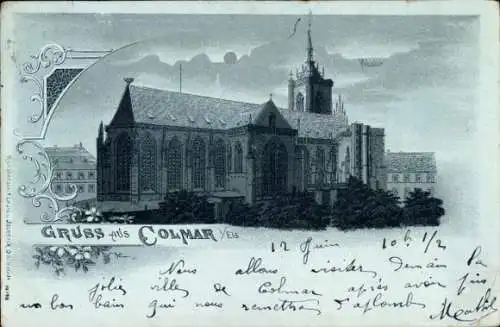 GRUSS AUS COLMAR i/Els
12 Juin 10h 1/2
Nous allons visiter demain la
jolie ville de Colmar après avoir pris
un bon bain qui nous remettra d'aplomb